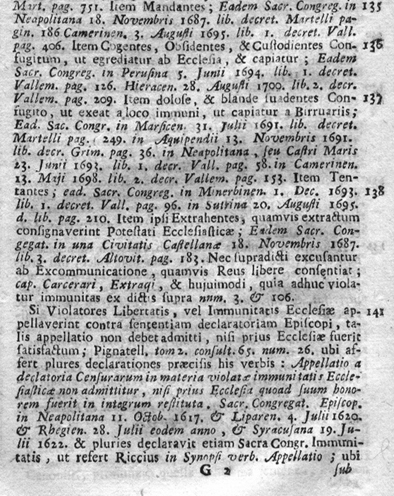 Mart. pag. 751. Item Mandantes; Eadem Sacr. Congreg. in 135
Neapolitana 18. Novembris 1687. lib. decret. Martelli pa-
gin. 186 Camerinen. 3. Augusti 1695. lib. 1. decret. Vall.
pag. 406. Item Cogentes, Obsidentes, & Custodientes Con- 136
fugitum, ut egrediatur ab Ecclesia, & capiatur; Eadem
Sacr. Congreg. in Perusina 5. Junii 1694. lib. 1. decret.
Vallem. pag. 126. Hieracen. 28. Augusti 1700. lib. 2. decr.
Vallem. pag. 209. Item dolose, & blande suadentes Con- 137
fugito, ut exeat a loco immuni, ut capiatur a Birruariis;
Ead. Sac. Congr. in Marsicen. 31. Julii 1691. lib. decret.
Martelli pag. 249. in Aquipendii 13. Novembris 1691.
lib. decr. Grim. pag. 36. in Neapolitana, seu Castri Maris
23. Junii 1693. lib. 1. decr. Vall. pag. 58. in Camerinen.
13. Maji 1698. lib. 2. decr. Vallem. pag. 153. Item Ten-
tantes; ead. Sacr. Congreg. in Minerbinen. 1. Dec. 1693. 138
lib. 1. decret. Vall. pag. 96. in Sutrina 20. Augusti 1695.
d. lib. pag. 210. Item ipsi Extrahentes, quamvis extractum
consignaverint Potestati Ecclesiasticæ; Eadem Sacr. Con-
gegat. in una Civitatis Castellanæ 18. Novembris 1687.
lib. 3. decret. Altovit. pag. 183. Nec supradicti excusantur
ab Excommunicatione, quamvis Reus libere consentiat;
cap. Carcerari, Extraqi, & hujuimodi, quia adhuc viola-
tur immunitas ex dictis supra num. 3. & 106.
Si Violatores Libertatis, vel Immunitatis Ecclesiæ ap- 141
pellaverint contra sententiam declaratoriam Episcopi, ta-
lis appellatio non debet admitti, nisi prius Ecclesiæ fuerit
satisfactum; Pignatell, tom 2. consult. 65. num. 26. ubi as-
fert plures declarationes præcisis his verbis: Appellatio a
declatoria Censurarum in materia violatæ immunitatis Eccle-
siasticæ non admittitur, nisi prius Ecclesia quoad suum hono-
rem fuerit in integrum restituta. Sacr. Congregat. Episcop.
in Neapolitana 11. Octob. 1617, & Liparen. 4. Julii 1620.
& Rhegien. 28. Julii eodem anno, & Syracusana 19. Ju-
lii 1622. & pluries declaravit etiam Sacra Congr. Immuni-
tatis, ut refert Riccius in Synopsi verb. Appellatio; ubi
G 2 sub